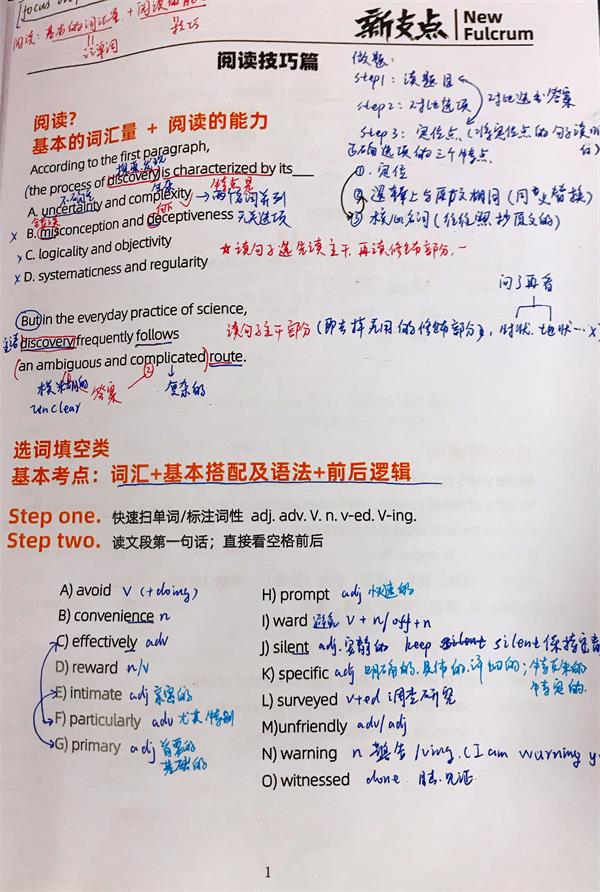 阅读：基本的词汇量 + 阅读的能
记单词
技巧
新支点 New Fulcrum
阅读技巧篇
做题：
step1：读题目
step2：对比选项
对比选出答案
step3：定位点
正确选项的三个特点
①. 定位
② 逻辑上与原文相同（同义替换）
③ 核心名词（往往照抄原文的）
阅读？
基本的词汇量 + 阅读的能力
According to the first paragraph,
探索发现
the process of discovery is characterized by its
不确定 复杂 特点是
A. uncertainty and complexity
→ 两个名词并列
错误
x B. misconception and deceptiveness
无关选项
x C. logicality and objectivity
x D. systematicness and regularity
★ 读句子是先读主干，再读修饰部分.
问了再看
But in the everyday practice of science,
读句子主干部分（即去掉无用的修饰部分），时状、地状… x
主语 discovery frequently follows
(an ambiguous and complicated) route.
模糊的 答案 ② 复杂的
unclear
选词填空类
基本考点：词汇+基本搭配及语法+前后逻辑
Step one. 快速扫单词/标注词性 adj. adv. V. n. v-ed. V-ing.
Step two. 读文段第一句话；直接看空格前后
A) avoid v (+doing)
B) convenience n
C) effectively adv
D) reward n/v
E) intimate adj 亲密的
F) particularly adv 尤其 特别
G) primary adj 首要的
基础的
H) prompt adj 快速的
I) ward 避免 v + n/off+n
J) silent adj. 安静的 keep silent 保持安静
K) specific adj 明确的.具体的.详细的；特有的
特定的.
L) surveyed v+ed 调查研究
M)unfriendly adv/adj
N) warning n 警告/ving.(I am warning y
O) witnessed done 目击.见证.
1